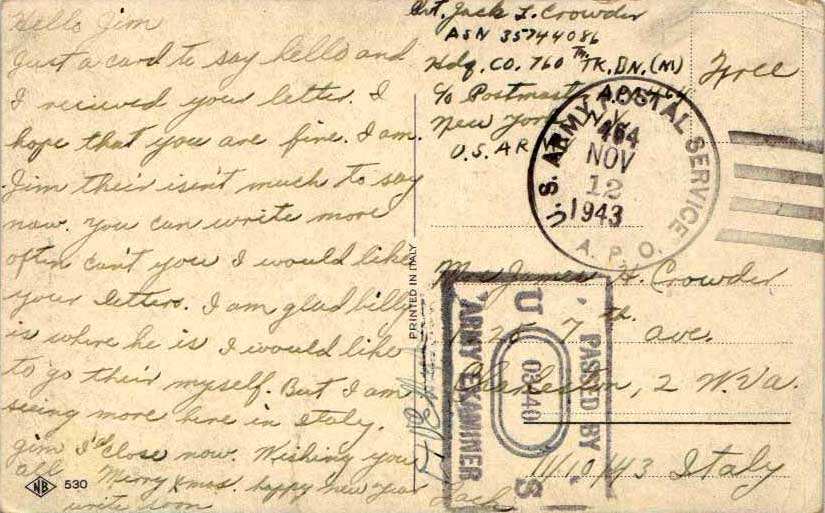 Hello Jim
Just a card to say hello and
I recieved your letter. I
hope that you are fine. I am.
Jim their isn't much to say
now. You can write more
often can't you I would like
your letters. I am glad billy
is where he is I would like
to go their myself. But I am
seeing more here in Italy.
Jim I'll close now. Wishing you
all Merry Xmas. happy new year
write soon
Jack
NB 530
PRINTED IN ITALY
Pvt. Jack L. Crowder
ASN 35744086
Hdq. CO. 760 TK. BN. (M)
c/o Postmaster A.P.O. 464
New York N.Y.
U.S. AR
Free
U.S. ARMY POSTAL SERVICE
464
NOV
12
1943
A. P. O.
James H. Crowder
7th ave.
Charleston, 2 W. Va.
11/10/43 Italy
PASSED BY
U S
03440
ARMY EXAMINER